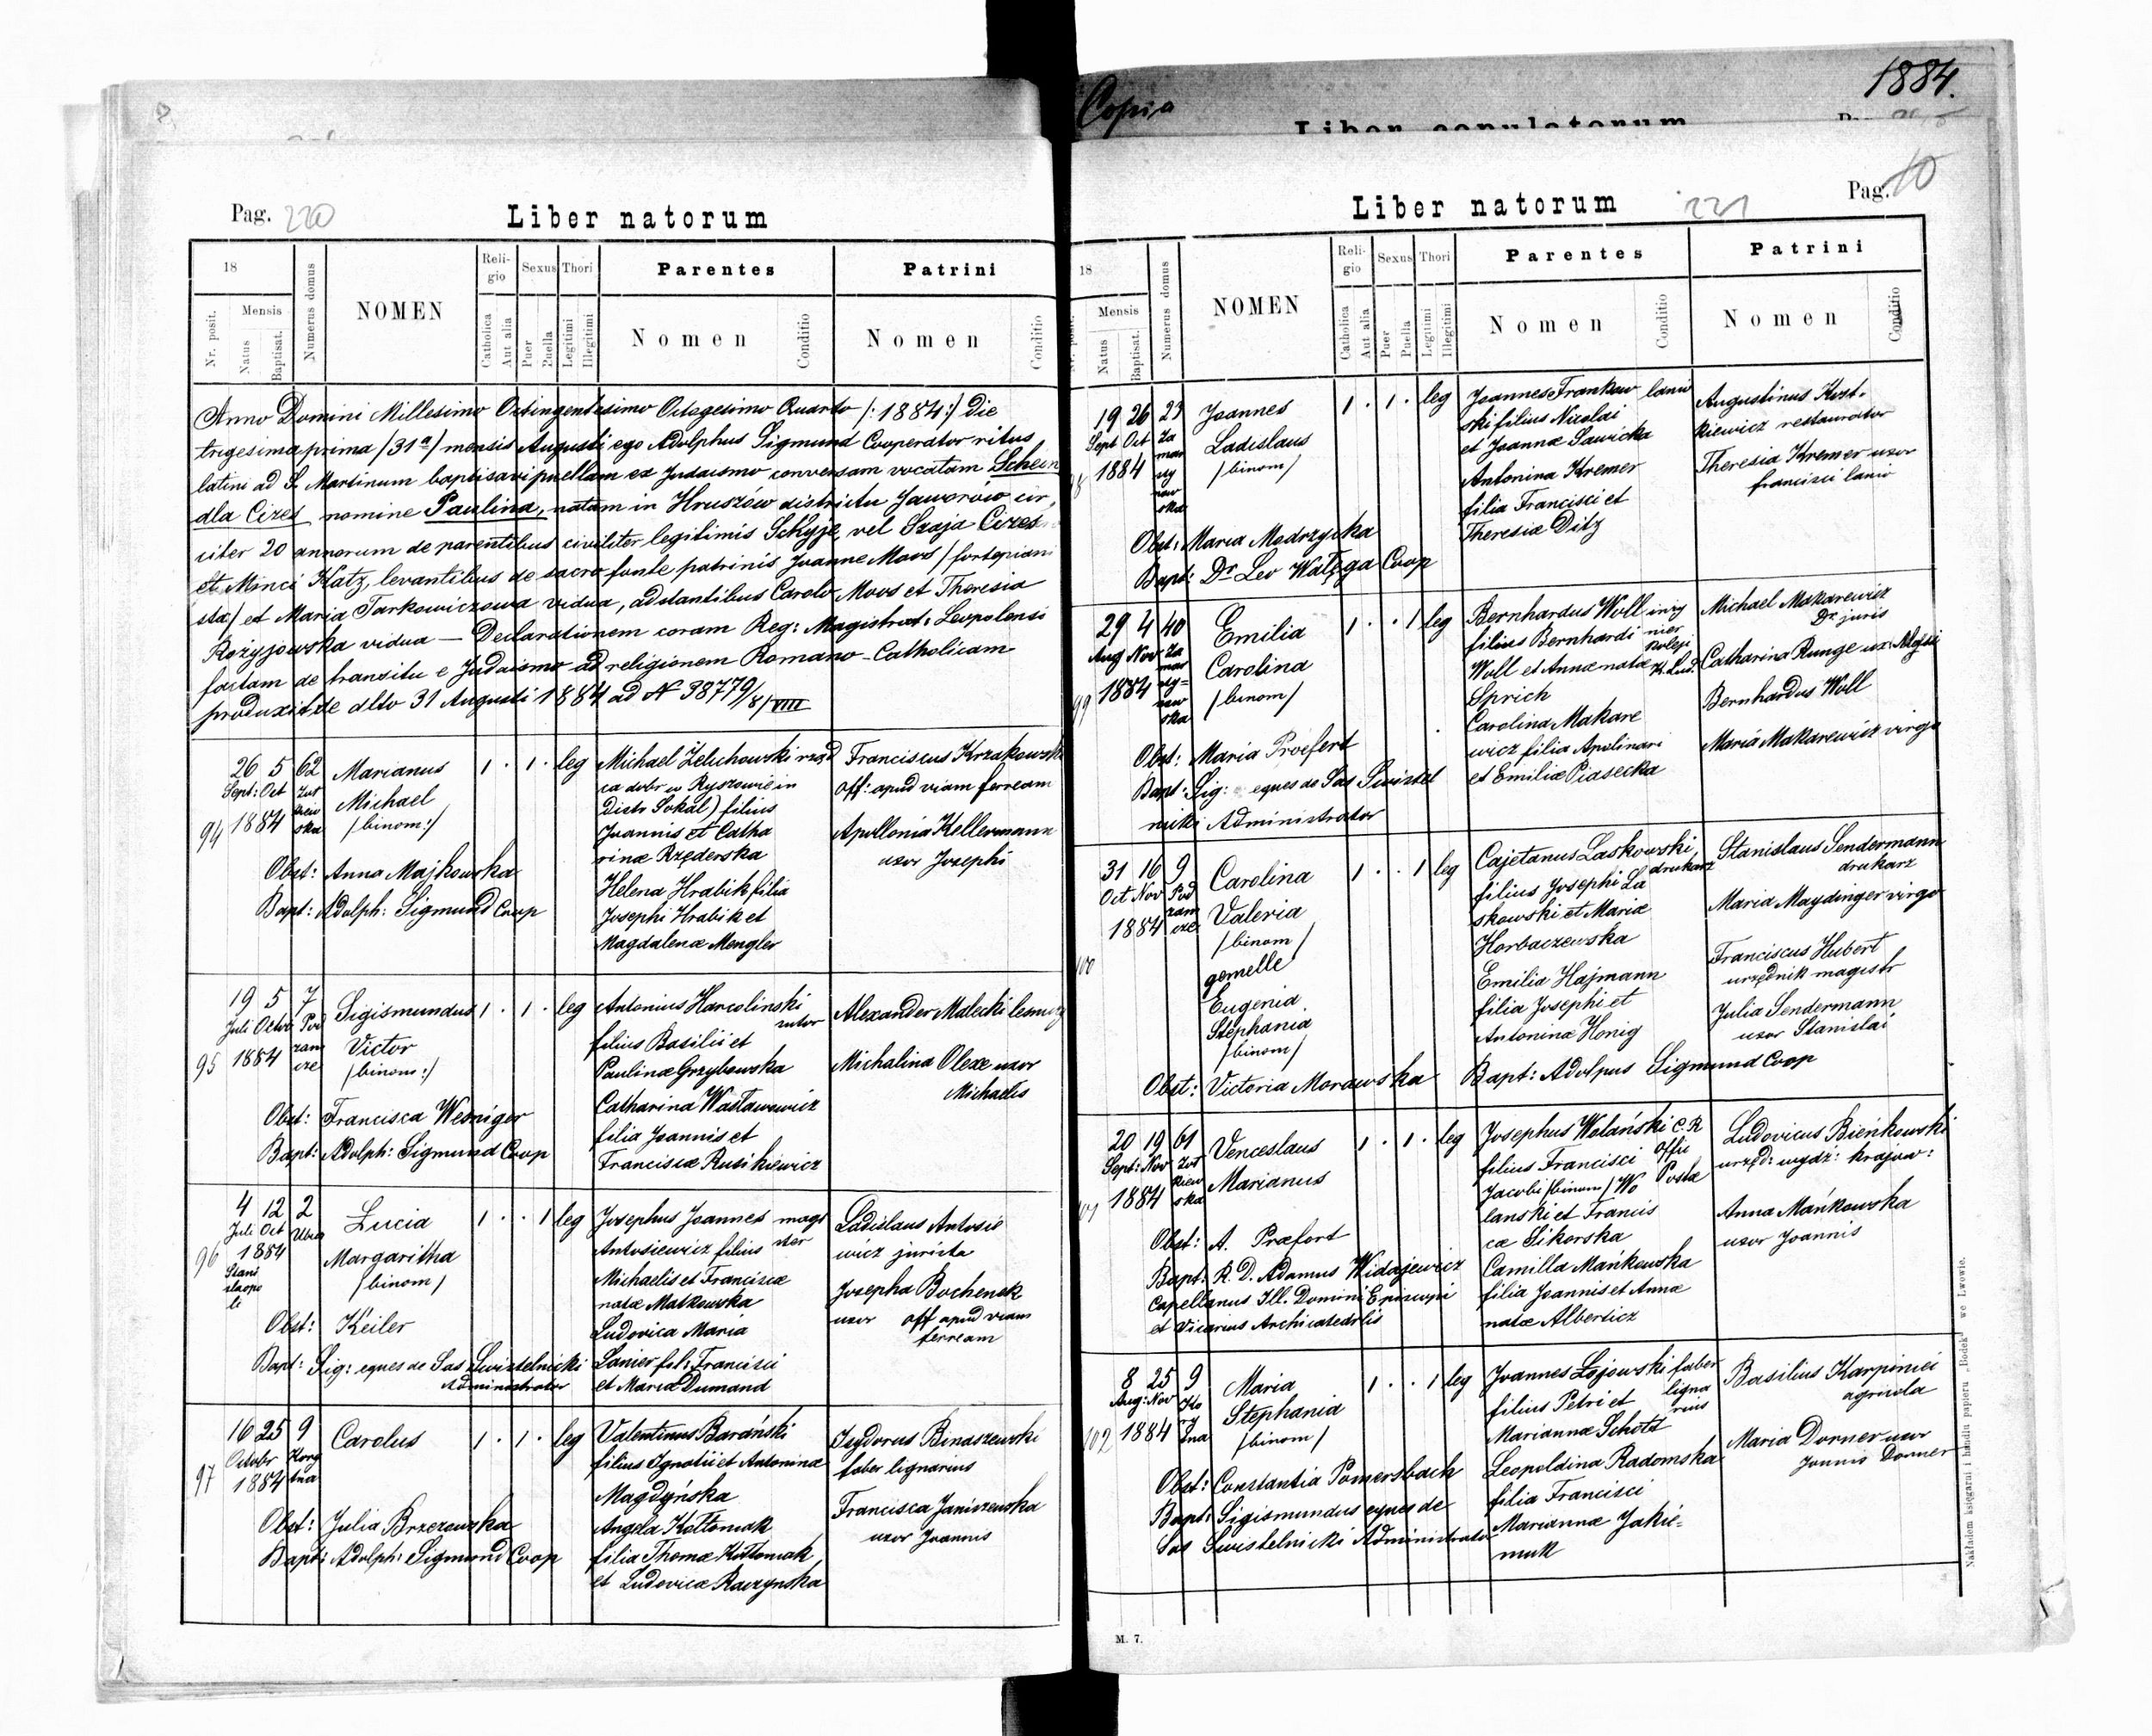 Copia
1884.
Liber copulatorum
Pag. 220
Liber natorum
18
Nr. posit.
Mensis
Natus
Baptisat.
Numerus domus
NOMEN
Religio
Catholica
Aut alia
Sexus
Puer
Puella
Thori
Legitimi
Illegitimi
Parentes
Nomen
Conditio
Patrini
Nomen
Conditio
Anno Domini Millesimo Octingentesimo Octogesimo Quarto /:1884:/ die
trigesima prima /31ª/ mensis Augusti ego Adolphus Sigmund Cooperator ritus
latini ad S. Martinum baptisavi puellam ex Judaismo conversam vocatam Schein
dla Cizes nomine Paulina, natam in Hruszow districtu Jaworów cir,
citer 20 annorum de parentibus civiliter legitimis Schyje vel Szaja Cizes
et Minci Katz, levantibus de sacro fonte patrinis Joanne Moos /fortepiani
sta/ et Maria Tarkowiczowa vidua, adstantibus Carolo Moos et Theresia
Rozyjowska vidua — Declarationem coram Reg: Magistrat: Leopolensi
factam de transitu e Judaismo ad religionem Romano-Catholicam
produxit de dto 31 Augusti 1884 ad N 38779/8/VIII
94
26 5 62
Sept: Oct Żół
1884 kiew
ska
Marianus
Michael
/binom:/
1 . 1 . leg
Michael Żelichowski rząd
ca dobr w Ryszowie in
Distr Sokal) filius
Joannis et Catha
rinæ Rzęderska
Helena Hrabik filia
Josephi Hrabik et
Magdalenæ Mengler
Franciscus Krzakowski
off: apud viam ferream
Apollonia Kellermann
uxor Josephi
Obst: Anna Majkowska
Bapt: Adolph: Sigmund Coop
95
19 5 7
Juli Octob Pod
1884 zam
cze
Sigismundus
Victor
/binom:/
1 . 1 . leg
Antonius Harcolinski
sutor
filius Basilii et
Paulinæ Grzybowska
Catharina Wasławowicz
filia Joannis et
Franciscæ Rusikiewicz
Alexander Malecki
Michalina Olexe uxor
Michaelis
Obst: Francisca Wesniger
Bapt: Adolph: Sigmund Coop
96
4 12 2
Juli Oct
1884
Stani
slaopo
li
Lucia
Margaritha
/binom/
1 . . 1 leg
Josephus Joannes magi
ster
Antosiewicz filius
Michaelis et Franciscæ
natæ Matkowska
Ludovica Maria
Lanier fil: Francisci
et Maria Dumand
Ladislaus Antosie
wicz jurista
Josepha Bochenek
uxor off apud viam
ferream
Obst: Keiler
Bapt: Sig: eques de Sas Swistelnicki
Administrator
97
16 25 9
Octobr
1884
Carolus
1 . 1 . leg
Valentinus Barański
filius Ignatii et Antoninæ
Magdyńska
Angela Kołtoniak
filia Thomæ Kołtoniak
et Ludovicæ Raczynska
Isydorus Binaszewski
faber lignarius
Francisca Janiszewska
uxor Joannis
Obst: Julia Brzezowska
Bapt: Adolph: Sigmund Coop
Liber natorum
221
Pag. 10
18
Mensis
Natus
Baptisat.
Numerus domus
NOMEN
Religio
Catholica
Aut alia
Sexus
Puer
Puella
Thori
Legitimi
Illegitimi
Parentes
Nomen
Conditio
Patrini
Nomen
Conditio
98
19 26 23
Sept Oct Za
1884 mar
sty
now
ska
Joannes
Ladislaus
/binom/
1 . 1 . leg
Joannes Frankow lanio
ski filius Nicolai
et Joannæ Sawicka
Antonina Kremer
filia Francisci et
Theresiæ Ditz
Augustinus Kost-
kiewicz restaurator
Theresia Kremer uxor
francisci lanio
Obst: Maria Modrzycka
Bapt: Dr Leo Wałęga Coop
99
29 4 40
Aug Nov Za
1884 mar
sty=
now
ska
Emilia
Carolina
/binom/
1 . . 1 leg
Bernhardus Woll inży
nier
kolei
K. Lud.
filius Bernhardi
Woll et Annæ natæ
Sprich
Carolina Makare
wicz filia Apolinari
et Emiliæ Piasecka
Michael Makarewicz
Dr juris
Catharina Runge ux: Alojsii
Bernhardus Woll
Maria Makarewicz virgo
Obst: Maria Proefert
Bapt: Sig: eques de Sas Swistel
nicki Administrator
100
31 16 9
Oct Nov Pod
1884 zam
cze
Carolina
Valeria
/binom/
gemelle
Eugenia
Stephania
/binom/
1 . . 1 leg
Cajetanus Laskowski
drukarz
filius Josephi La
skowski et Mariæ
Horbaczewska
Emilia Hajmann
filia Josephi et
Antoninæ Honig
Stanislaus Sendermann
drukarz
Maria Maydinger virgo
Franciscus Hubert
urzędnik magistr
Julia Sendermann
uxor Stanislai
Obst: Victoria Morawska
Bapt: Adolpus Sigmund Coop
101
20 19 61
Sept: Nov Żół
1884 kiew
ska
Venceslaus
Marianus
1 . 1 . leg
Josephus Wolański C. R
Offi
Postæ
filius Francisci
Jacobi /binom/ Wo
lanski et Francis
cæ Sikorska
Camilla Mańkowska
filia Joannis et Annæ
natæ Alberticz
Ludovicus Bieńkowski
urzęd: wydz: krajow:
Anna Mańkowska
uxor Joannis
Obst: A. Præfort
Bapt: R. D. Adamus Widajewicz
Capellanus Ill. Domini Episcopi
et Vicarius Archicatedrlis
102
8 25 9
Aug: Nov
1884
Maria
Stephania
/binom/
1 . . 1 leg
Joannes Łojowski faber
ligna
rius
filius Petri et
Mariannæ Schott
Leopoldina Radomska
filia Francisci
Mariannæ Jakie-
miuk
Basilius Karpiniei
agricola
Maria Dorner uxor
Joannis Dorner
Obst: Constantia Pomersbach
Bapt: Sigismundus eques de
Sas Swistelnicki Administrator
M. 7.
Nakładem księgarni i handlu papieru „Bodek" we Lwowie.